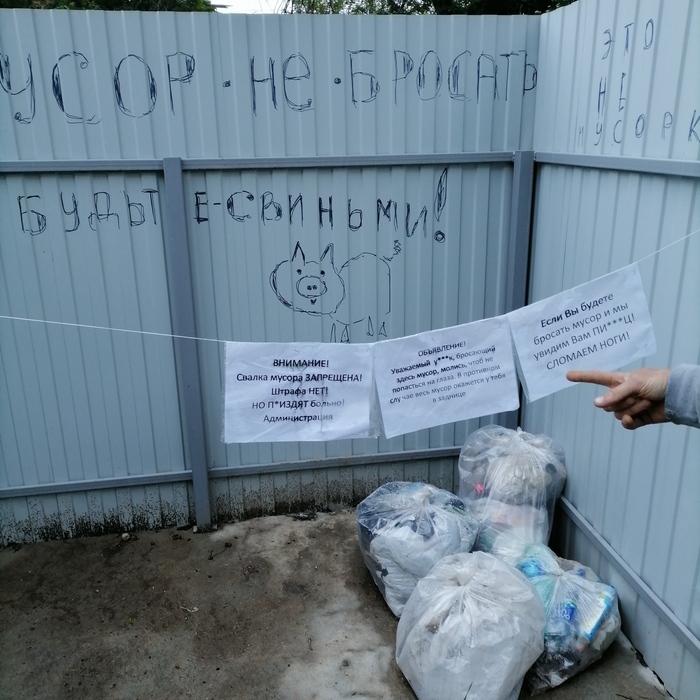 УСОР·НЕ·БРОСАТЬ
БУДЬТЕ-СВИНЬМИ!
ЭТО
НЕ
УСОРК
ВНИМАНИЕ!
Свалка мусора ЗАПРЕЩЕНА!
Штрафа НЕТ!
НО П*ИЗДЯТ больно!
Администрация
ОБЪЯВЛЕНИЕ!
Уважаемый у***к, бросающий
здесь мусор, молись, чтоб не
попасться на глаза. В противном
случае весь мусор окажется у тебя
в заднице
Если Вы будете
бросать мусор и мы
увидим Вам ПИ***Ц!
СЛОМАЕМ НОГИ!